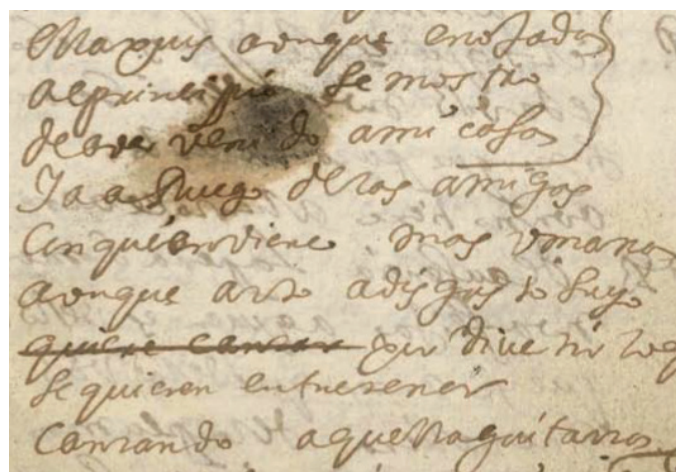 el laquis aonque enojado
al principio se mostro
de aver venido a mi casa
Ya a Ruego de los amigos
Con quien viene mas vmano
aonque arto a disgusto suyo
quiere cantar por divertirlos
se quieren entretener
Cantando aquella guitarra